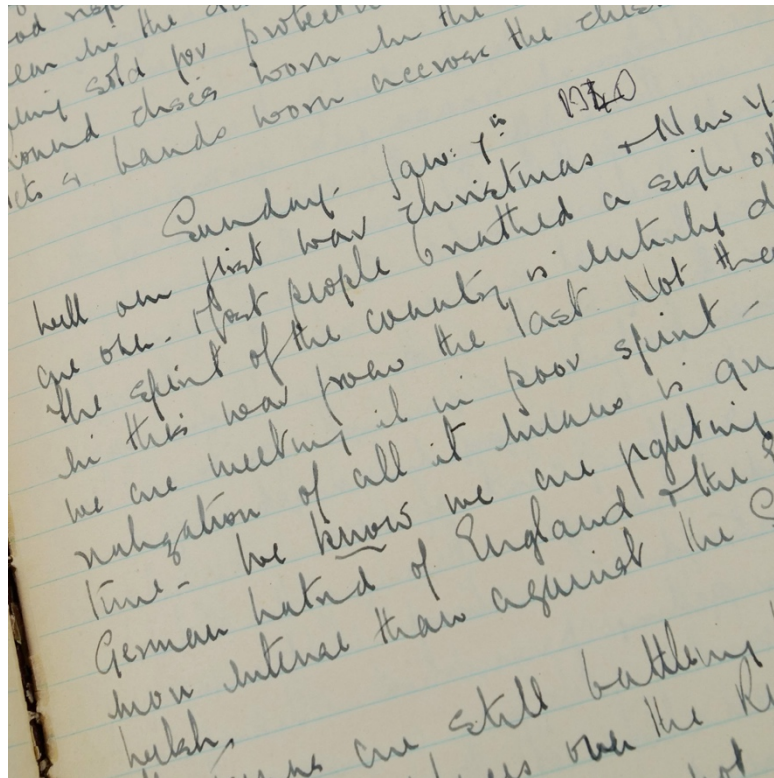 ear in the
being sold for protection
round discs worn in the
cts & bands worn accross the
Sunday. Jan: 7th 1940
Well our first war Christmas & New Y
are over. Most people breathed a sigh of
The spirit of the country is entirely d
in this war from the last. Not tha
we are meeting it in poor spirit -
realization of all it means is
time - We know we are fighting
German hatred of England & the
more intense than against the
are still battling
over the
not